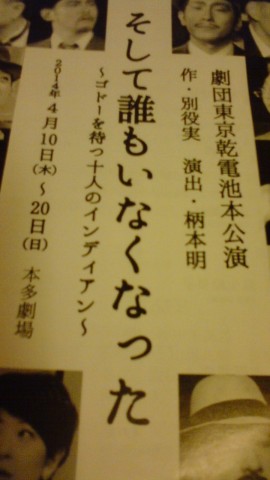 劇団東京乾電池本公演
作・別役実　演出・柄本明
そして誰もいなくなった
～ゴドーを待つ十人のインディアン～
2014年4月10日(木)～20日(日)　本多劇場